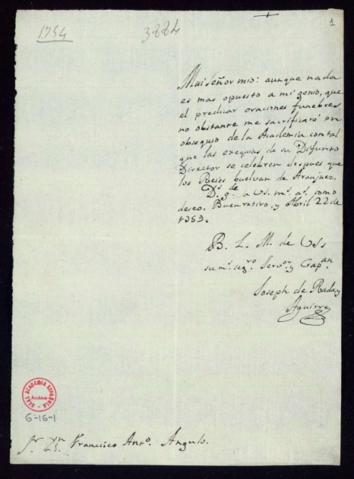 1
1754
3224
Mui señor mio: aunque nada
es mas opuesto a mi genio, que
el predicar oraciones funebres,
no obstante me sacrificaré en
obsequio de la Academia con tal
que las exequias de su Difunto
Director se celebren despues que
los Reies buelvan de Aranjuez.
Ds. gde. a Us. ms. as. como
deseo. Buen retiro, y Abril 22 de
1759.
B. L. M. de Uss
su ms. segro. Servor. y Capan.
Joseph de Rada y
Aguirre
REAL ACADEMIA ESPAÑOLA
6-16-1
Sr. Dn. Francisco Anto. Angulo.